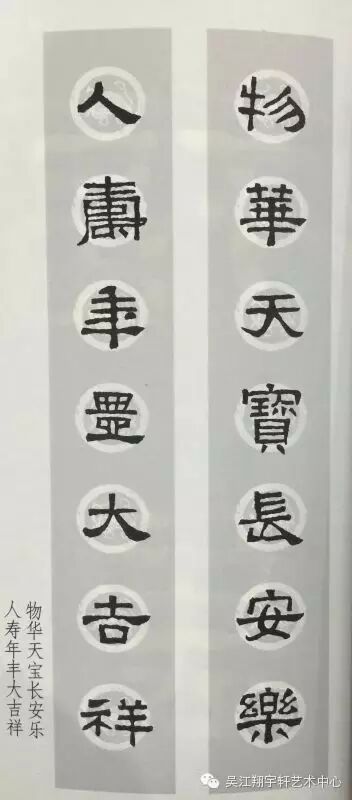 物華天寶長安樂
人壽年豊大吉祥
物华天宝长安乐
人寿年丰大吉祥
吴江翔宇轩艺术中心